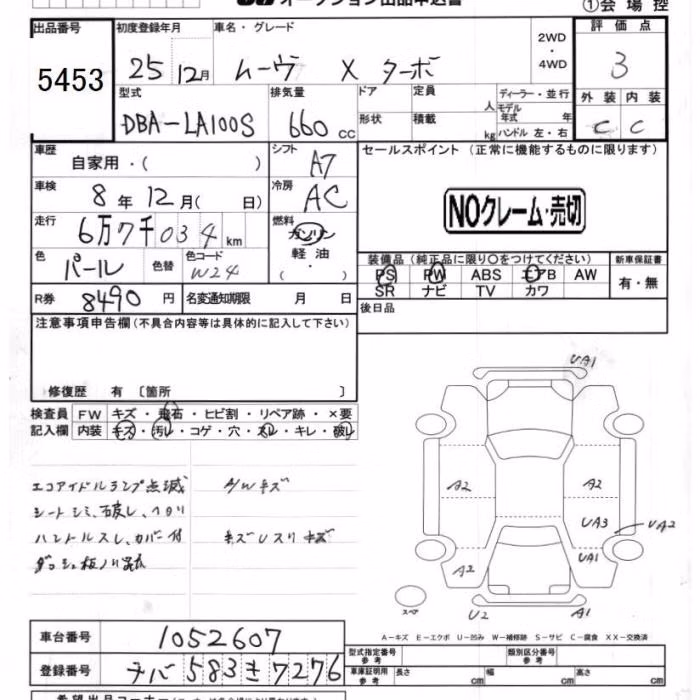 オークション出品申込書
①会場控
出品番号 初度登録年月 車名・グレード 2WD ・ 4WD 評価点
5453 25 12月 ムーヴ X ターボ 3
型式 排気量 ドア 定員 人 ディーラー・並行 外装 内装
DBA-LA100S 660cc 形状 積載 kg モデル年式 年 ハンドル 左・右 C C
車歴 自家用・( ) シフト A7 セールスポイント (正常に機能するものに限ります)
車検 8年 12月( 日) 冷房 AC NOクレーム・売切
走行 6万7千034km 燃料 ガソリン 軽油 ( ・ )
色 パール 色替 色コード W24
装備品(純正品に限り○をつけてください) 新車保証書
PS PW ABS エアB AW 有・無
SR ナビ TV カワ
R券 8490円 名変通知期限 月 日 後日品
注意事項申告欄(不具合内容等は具体的に記入して下さい)
修復歴 有 〔箇所 〕
検査員 FW キズ・飛石・ヒビ割・リペア跡・×要
記入欄 内装 キズ・汚レ・コゲ・穴・スレ・キレ・破レ
エコアイドルランプ点滅 A/Wキズ
シートシミ、破レ、ヘタリ
ハンドルスレ、カバー付 キズUスリキズ
ダッシュ板ノリ
UA1
A2 A2
UA3 UA2
A2 UA1
スペア U2 A1
A-キズ E-エクボ U-凹み W-補修跡 S-サビ C-腐食 XX-交換済
車台番号 1052607
登録番号 チバ 583 き 7276
型式指定番号 参考 類別区分番号 参考
車庫証明用 参考 長さ cm 幅 cm 高さ cm
希望出品コーナー